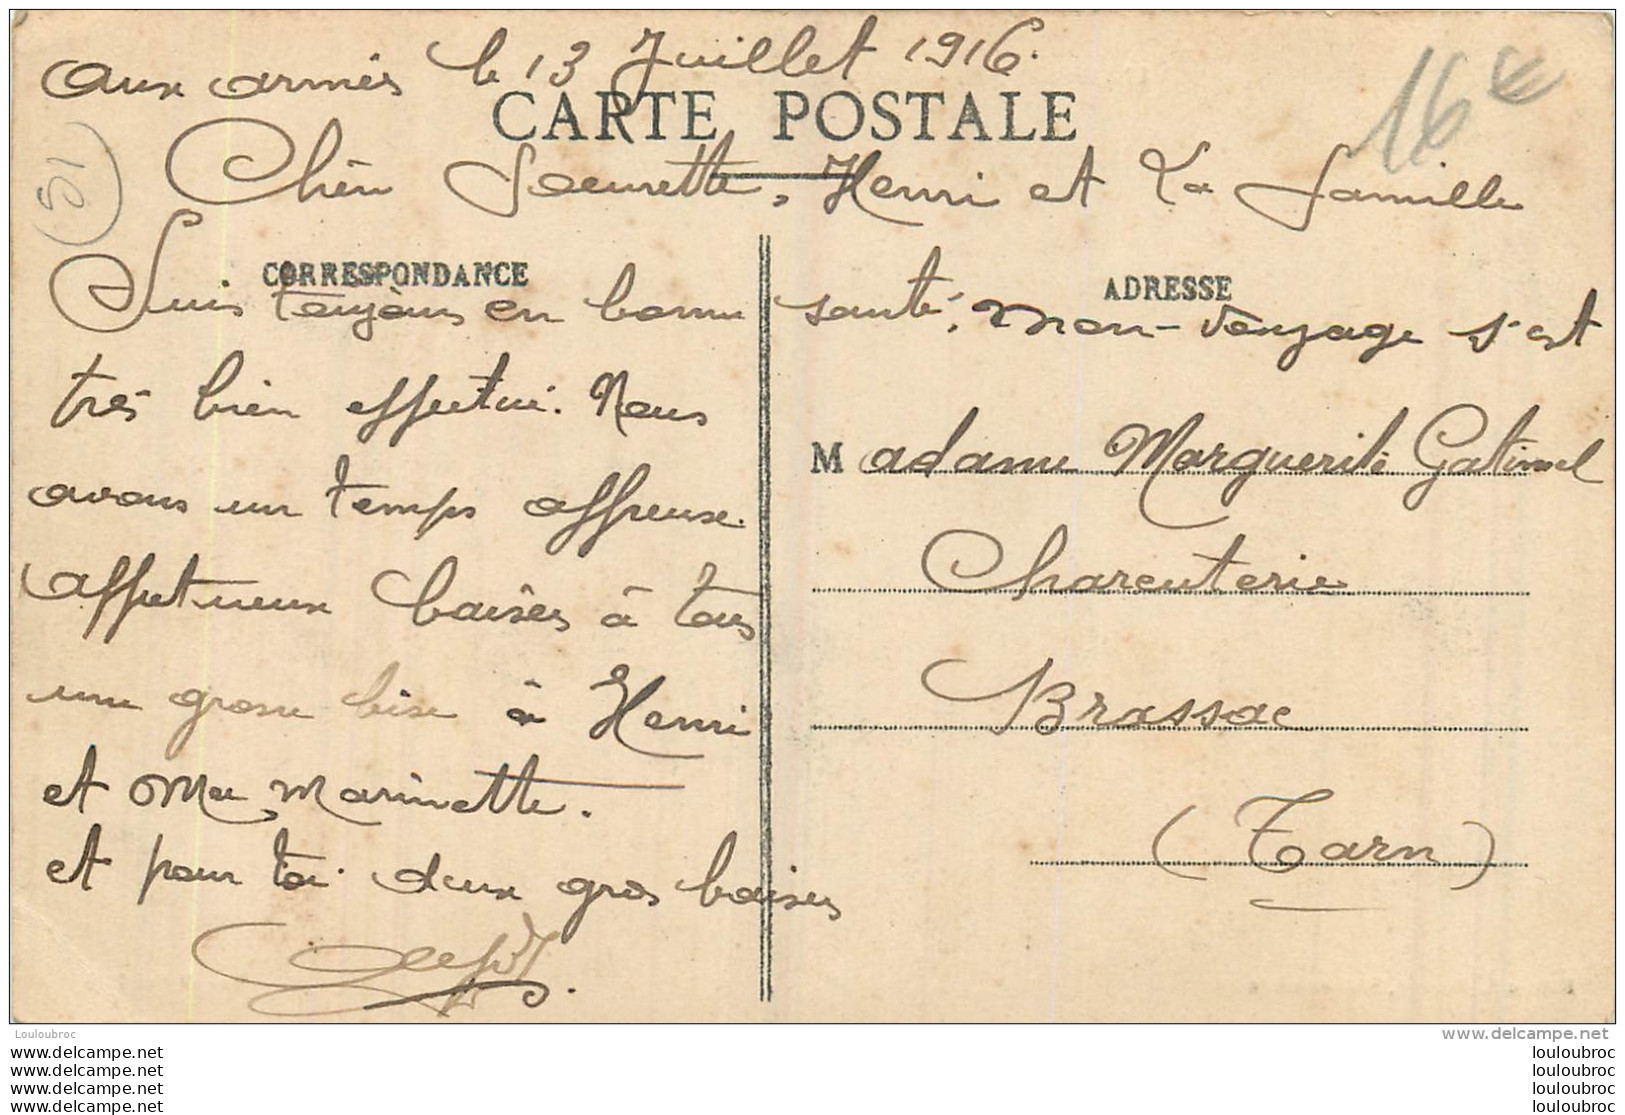 aux armés le 13 Juillet 1916.
CARTE POSTALE
16 €
51
Chère Soeurette, Henri et La famille
CORRESPONDANCE
ADRESSE
Suis toujours en bonne santé, mon voyage s'est
très bien effectué. Nous
avons un temps affreux.
affectueux baisers à tous
une grosse bise à Henri
et Me Marinette.
et pour toi deux gros baisers
Madame Marguerite Gatimel
Charcuterie
Brassac
(Tarn)
Louloubroc
www.delcampe.net
www.delcampe.net
www.delcampe.net
www.delcampe.net
www.delcampe.net
louloubroc
louloubroc
louloubroc
louloubroc